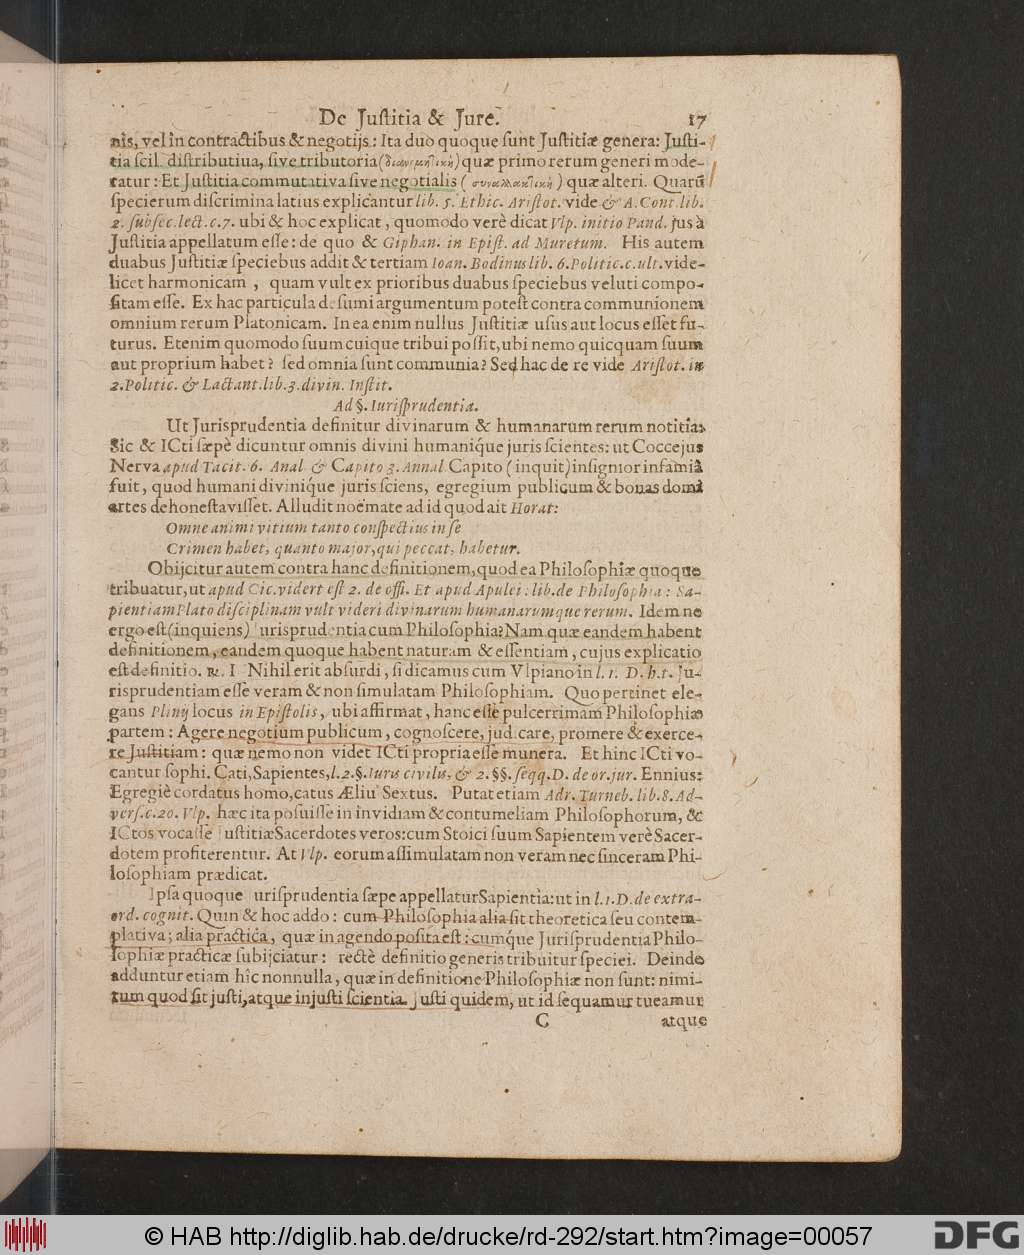 De Juſtitia & Jure. 17
nis, vel in contractibus & negotijs: Ita duo quoque ſunt Juſtitiæ genera: Juſti-
tia ſcil. diſtributiua, ſive tributoria (διανεμητικὴ) quæ primo rerum generi mode-
ratur: Et Juſtitia commutativa ſive negotialis (συναλλακτικὴ) quæ alteri. Quarū
ſpecierum diſcrimina latius explicantur lib. 5. Ethic. Ariſtot. vide & A. Cont. lib.
2. ſubſec. lect. c. 7. ubi & hoc explicat, quomodo verè dicat Vlp. initio Pand. jus à
Juſtitia appellatum eſſe: de quo & Giphan. in Epiſt. ad Muretum. His autem
duabus Juſtitiæ ſpeciebus addit & tertiam Ioan. Bodinus lib. 6. Politic. c. ult. vide-
licet harmonicam, quam vult ex prioribus duabus ſpeciebus veluti compo-
ſitam eſſe. Ex hac particula deſumi argumentum poteſt contra communionem
omnium rerum Platonicam. In ea enim nullus Juſtitiæ uſus aut locus eſſet fu-
turus. Etenim quomodo ſuum cuique tribui poſſit, ubi nemo quicquam ſuum
aut proprium habet? ſed omnia ſunt communia? Sed hac de re vide Ariſtot. in
2. Politic. & Lactant. lib. 3. divin. Inſtit.
Ad §. Iuriſprudentia.
Ut Jurisprudentia definitur divinarum & humanarum rerum notitia:
Sic & ICti ſæpè dicuntur omnis divini humaniq́ue juris ſcientes: ut Coccejus
Nerva apud Tacit. 6. Anal. & Capito 3. Annal. Capito (inquit) inſignior infamiâ
fuit, quod humani diviniq́ue juris ſciens, egregium publicum & bonas domi
artes dehoneſtaviſſet. Alludit noëmate ad id quod ait Horat:
Omne animi vitium tanto conſpectius in ſe
Crimen habet, quanto major, qui peccat, habetur.
Obijcitur autem contra hanc definitionem, quod ea Philoſophiæ quoque
tribuatur, ut apud Cic. videri eſt 2. de offi. Et apud Apulei: lib. de Philoſophia: Sa-
pientiam Plato diſciplinam vult videri divinarum humanarumque rerum. Idem ne
ergo eſt (inquiens) urisprudentia cum Philoſophia? Nam quæ eandem habent
definitionem, eandem quoque habent naturam & eſſentiam, cujus explicatio
eſt definitio. ℞. I Nihil erit abſurdi, ſi dicamus cum Vlpiano in l. 1. D. h. t. Ju-
risprudentiam eſſe veram & non ſimulatam Philoſophiam. Quo pertinet ele-
gans Plinij locus in Epiſtolis, ubi affirmat, hanc eſſe pulcerrimam Philoſophiæ
partem: Agere negotium publicum, cognoſcere, judicare, promere & exerce-
re Juſtitiam: quæ nemo non videt ICti propria eſſe munera. Et hinc ICti vo-
cantur ſophi, Cati, Sapientes, l. 2. §. Iuris civilis, & 2. §§. ſeqq. D. de or. jur. Ennius:
Egregiè cordatus homo, catus Æliu' Sextus. Putat etiam Adr. Turneb. lib. 8. Ad-
verſ. c. 20. Vlp. hæc ita poſuiſſe in invidiam & contumeliam Philoſophorum, &
ICtos vocaſſe Juſtitiæ Sacerdotes veros: cum Stoici ſuum Sapientem verè Sacer-
dotem profiterentur. At Vlp. eorum aſſimulatam non veram nec ſinceram Phi-
loſophiam prædicat.
Ipſa quoque urisprudentia ſæpe appellatur Sapientia: ut in l. 1. D. de extra-
ord. cognit. Quin & hoc addo: cum Philoſophia alia ſit theoretica ſeu contem-
plativa; alia practica, quæ in agendo poſita eſt: cumq́ue Juriſprudentia Philo-
ſophiæ practicæ ſubijciatur: rectè definitio generis tribuitur ſpeciei. Deinde
adduntur etiam hîc nonnulla, quæ in definitione Philoſophiæ non ſunt: nimi-
rum quod ſit juſti, atque injuſti ſcientia. Juſti quidem, ut id ſequamur tueamur
C atque
© HAB http://diglib.hab.de/drucke/rd-292/start.htm?image=00057
DFG